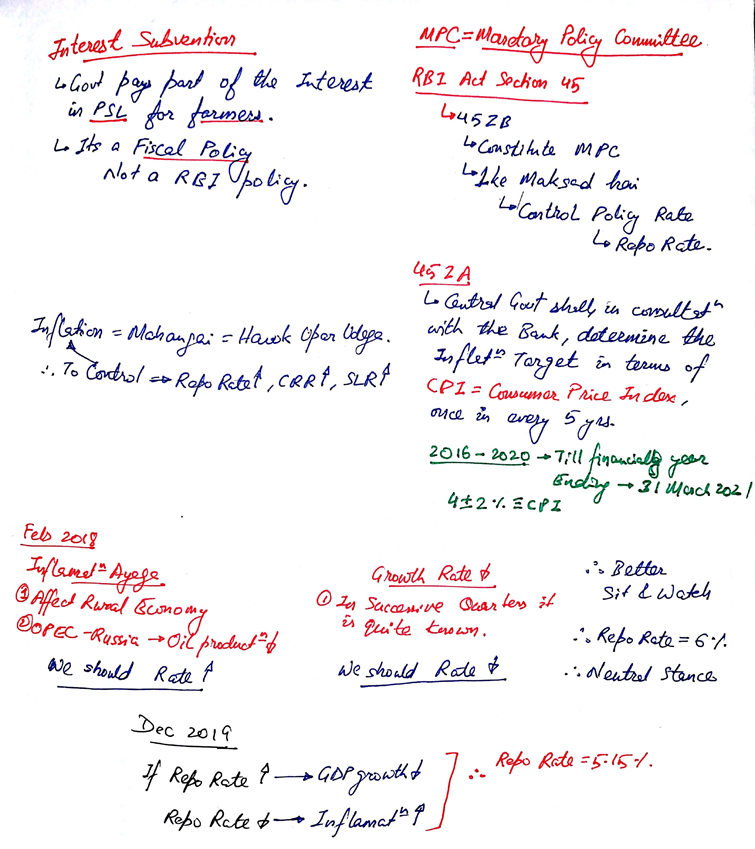 Interest Subvention
↳ Govt pays part of the Interest
in PSL for farmers.
↳ Its a Fiscal Policy
Not a RBI policy.
MPC = Manetory Policy Committee
RBI Act Section 45
↳ 45ZB
↳ Constitute MPC
↳ Ike Maksad hai
↳ Control Policy Rate
↳ Repo Rate.
45ZA
↳ Central Govt shall, in consultatⁿ
with the Bank, determine the
Inflatⁿ Target in terms of
CPI = Consumer Price Index,
once in every 5 yrs.
2016-2020 → Till financially year
Ending → 31 March 2021
4±2% ≡ CPI
Inflation = Mahangai = Hawk Opar Udega.
∴ To Control ⇒ Repo Rate↑, CRR↑, SLR↑
Feb 2018
Inflamatⁿ Ayega
① Affect Rural Economy
② OPEC-Russia → Oil productⁿ↓
We should Rate ↑
Growth Rate ↓
① In Successive Quarters it
is quite known.
We should Rate ↓
∴ Better
Sit & Watch
∴ Repo Rate = 6%
∴ Neutral Stance
Dec 2019
If Repo Rate ↑ → GDP growth↓
Repo Rate ↓ → Inflamatⁿ ↑
∴ Repo Rate = 5.15%.